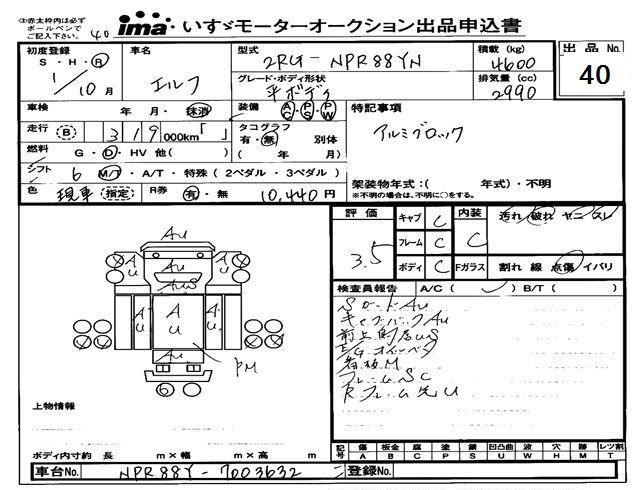 ①赤太枠内は必ず
ボールペンで
ご記入下さい。
40
ima いすゞモーターオークション出品申込書
初度登録 S・H・R 1/10月
車名 エルフ
型式 2RG-NPR88YN
積載(kg) 4600
出品No. 40
グレード・ボディ形状 平ボデラ
排気量(cc) 2990
車検 年 月・抹消
装備 AC・PS・PW
特記事項
アルミブロック
走行 B 319,000km「 」
タコグラフ 有・無 別体
( 年 月)
燃料 G・D・HV 他( )
シフト 6 M/T・A/T・特殊(2ペダル・3ペダル)
架装物年式:( 年式)・不明
※不明の場合は、不明に○をする。
色 現車 (指定) R券 有・無 10,440円
評価 3.5
キャブ C
フレーム C
ボディ C
内装 C
汚れ 破れ ヤニ スレ
Fガラス 割れ 線 点傷 イバリ
検査員報告 A/C( ) B/T( )
SロードAU
キャブバックAU
名板M
フレームSC
Rフレーム先U
AU
U
A
U
A
U
AU
A
U
A
U
A
U
PM
AU
6
上物情報
ボディ内寸約 長 m×幅 m×高 m
記号 傷A 板金B 腐C 塗P 錆S 凹凸曲U 波W 穴H 跡M レツ割T
車台No. NPR88Y-7003632
登録No.